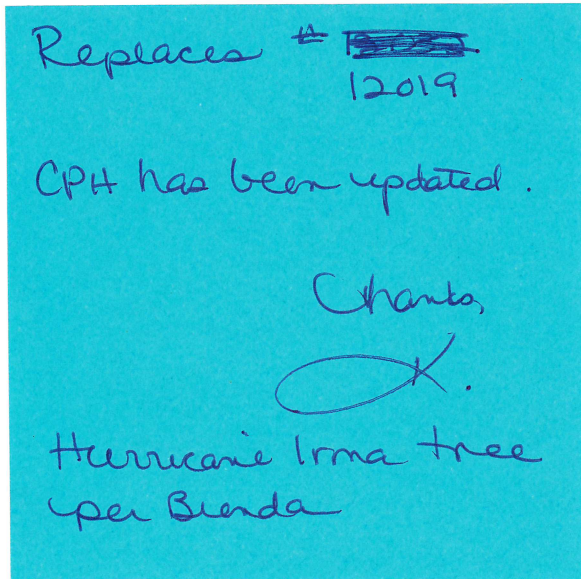 Replaces #
12019
CPH has been updated.
Thanks,
K.
Hurricane Irma tree
per Brenda